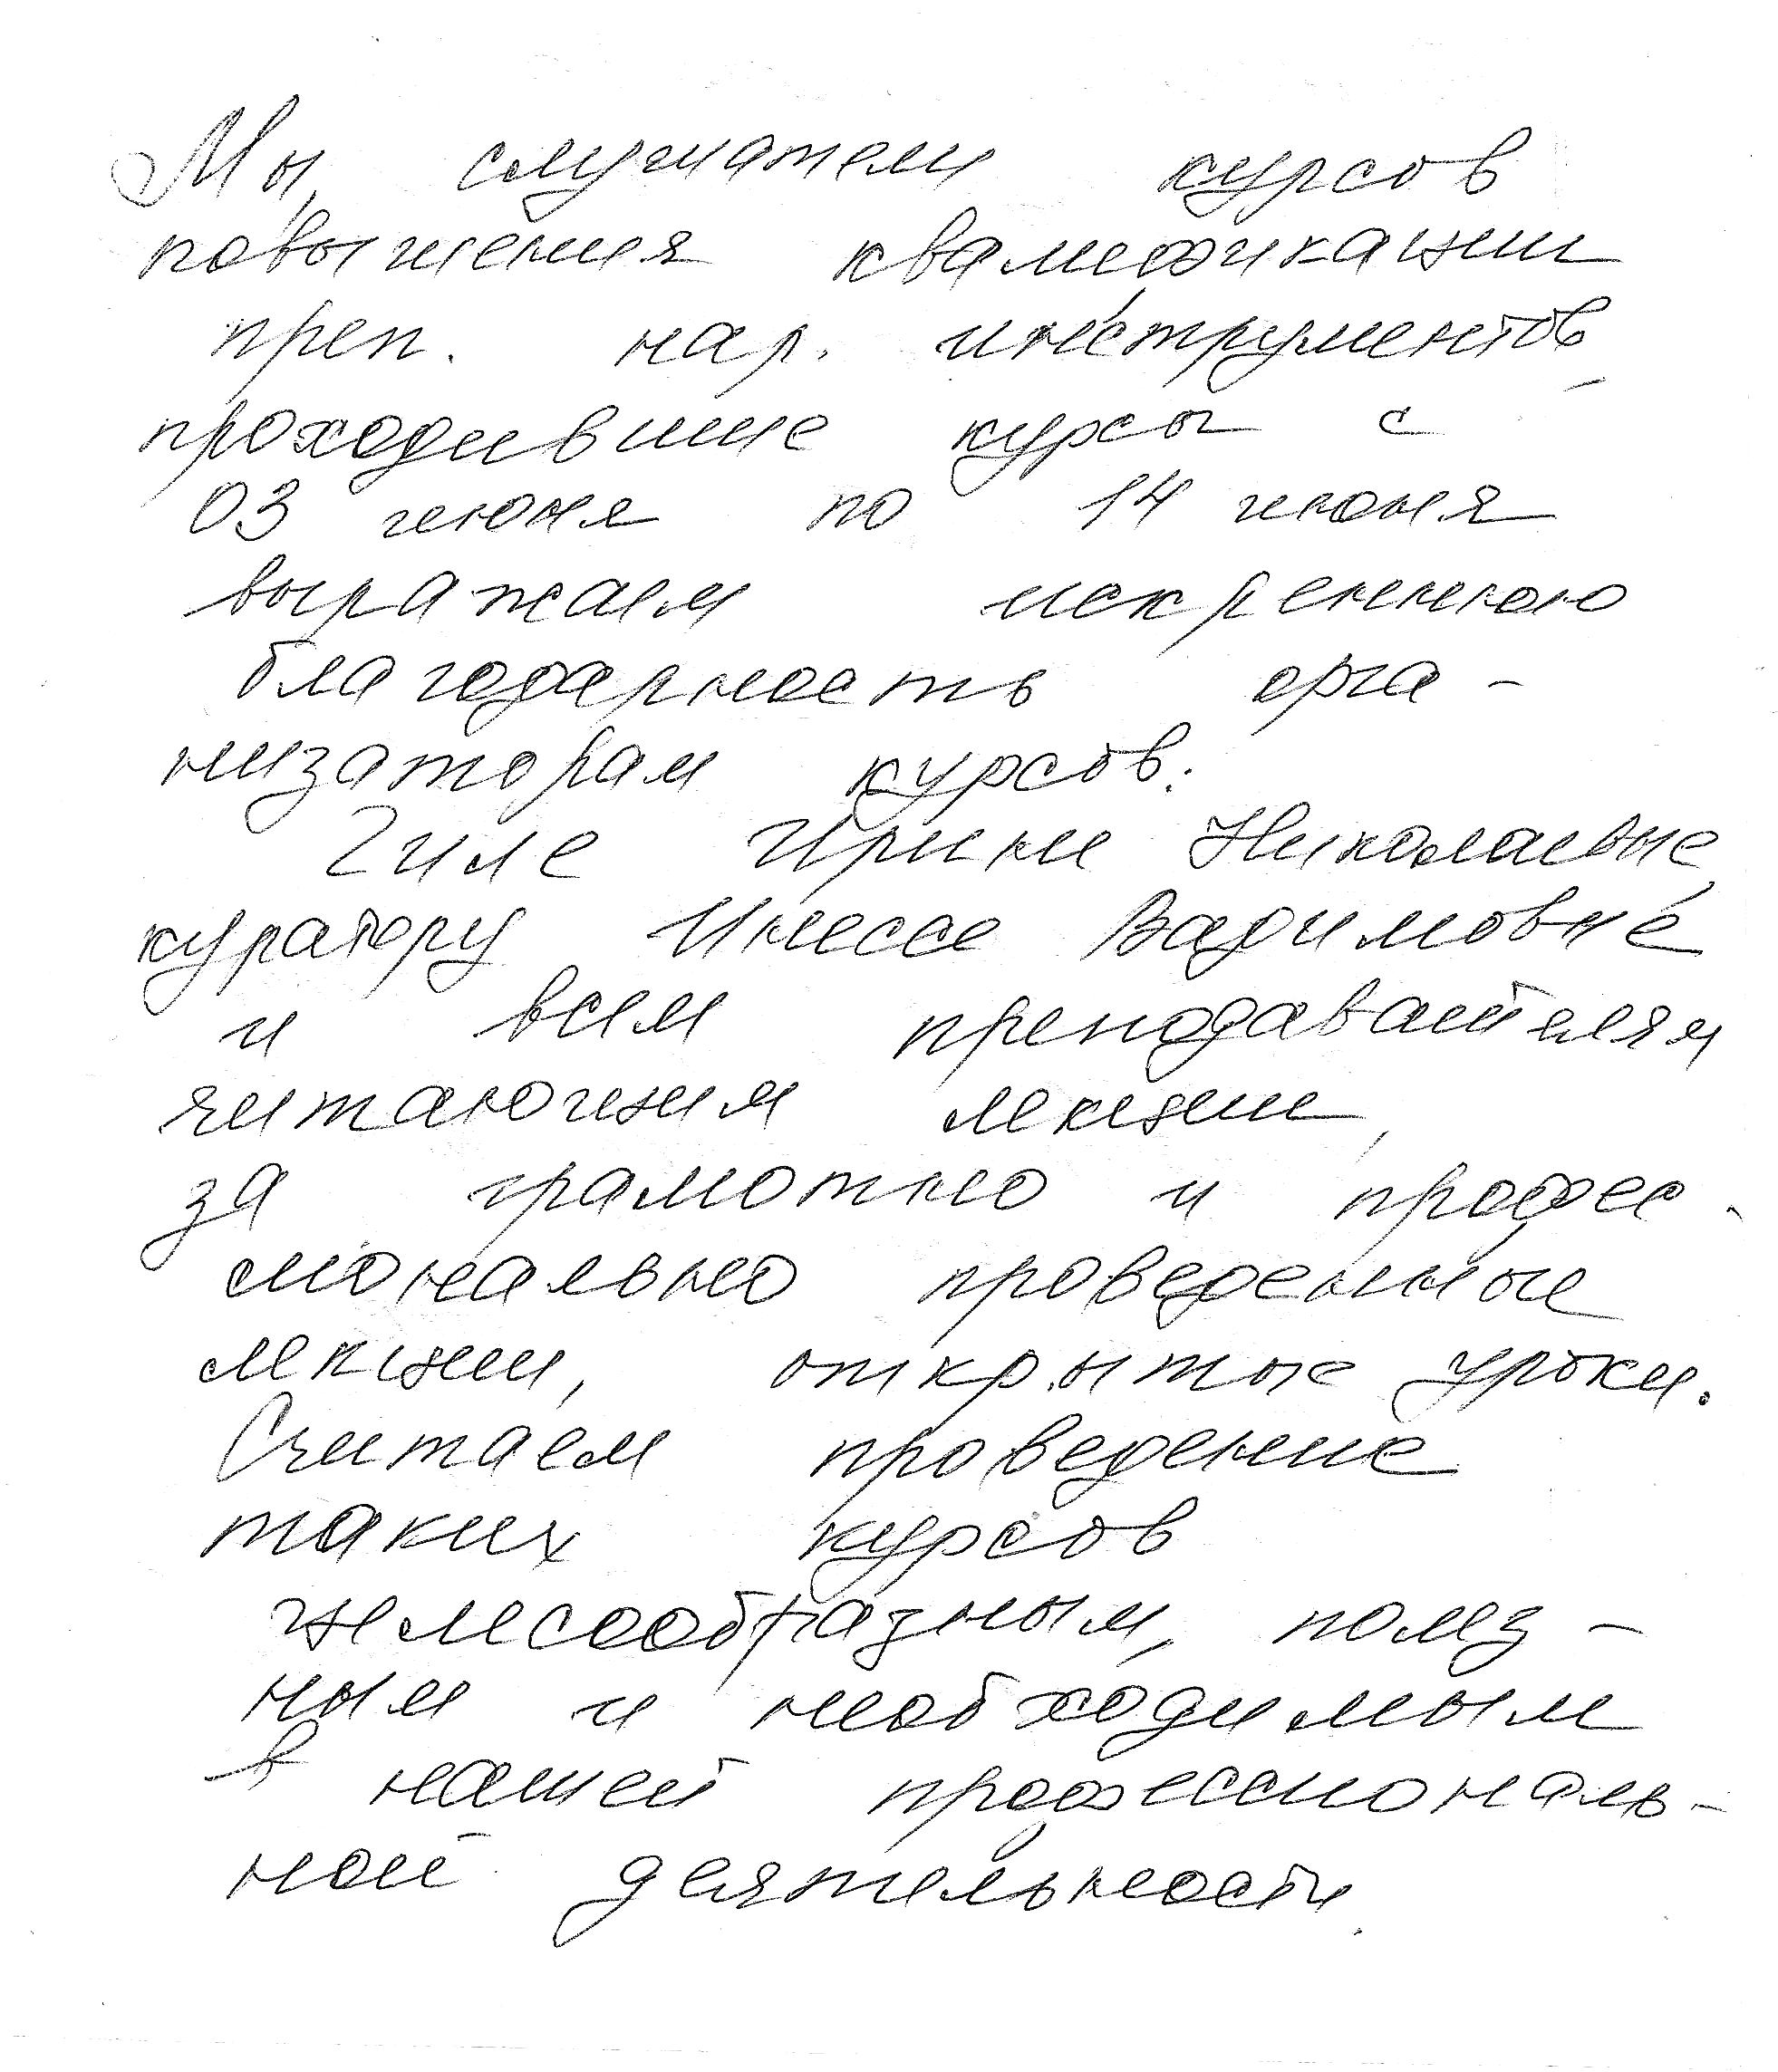 Мы, слушатели курсов
повышения квалификации
преп. нар. инструментов,
проходившие курсы с
03 июня по 14 июня
выражаем искреннюю
благодарность орга-
низаторам курсов:
Ирине Николаевне,
куратору Инессе Вадимовне
и всем преподавателям
читающим лекции,
за грамотно и профес-
сионально проведенные
лекции, открытые уроки.
Считаем проведение
таких курсов
целесообразным, полез-
ным и необходимым
в нашей профессиональ-
ной деятельности.